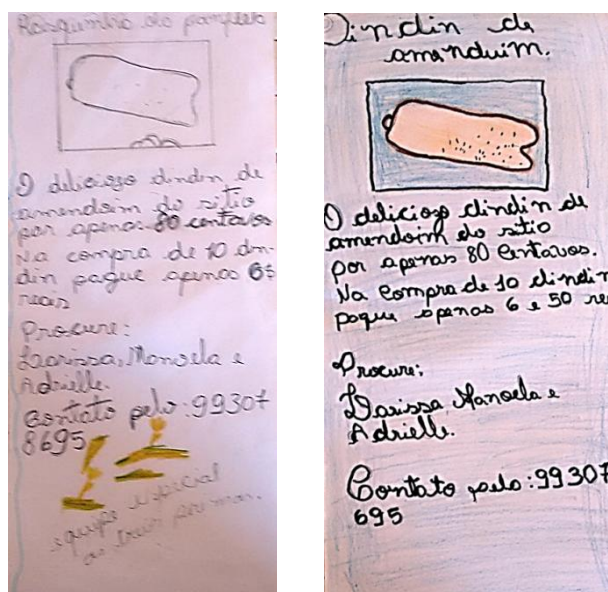 Rasquinho do panfleto
O delicioso dindin de
amendoim do sitio
por apenas 80 centavos
Na compra de 10 din-
din pague apenas 6$
reais
Procure:
Larissa, Manoela e
Adrielle.
Contato pelo: 99307
8695
equipe especial
as
Dindin de
amanduim.
O delicioso dindin de
amendoim do sitio
por apenas 80 Centavos.
Na Compra de 10 dindin
pague apenas 6 e 50 re
Procure:
Larissa Manoela e
Adrielle.
Contato pelo: 99307
695